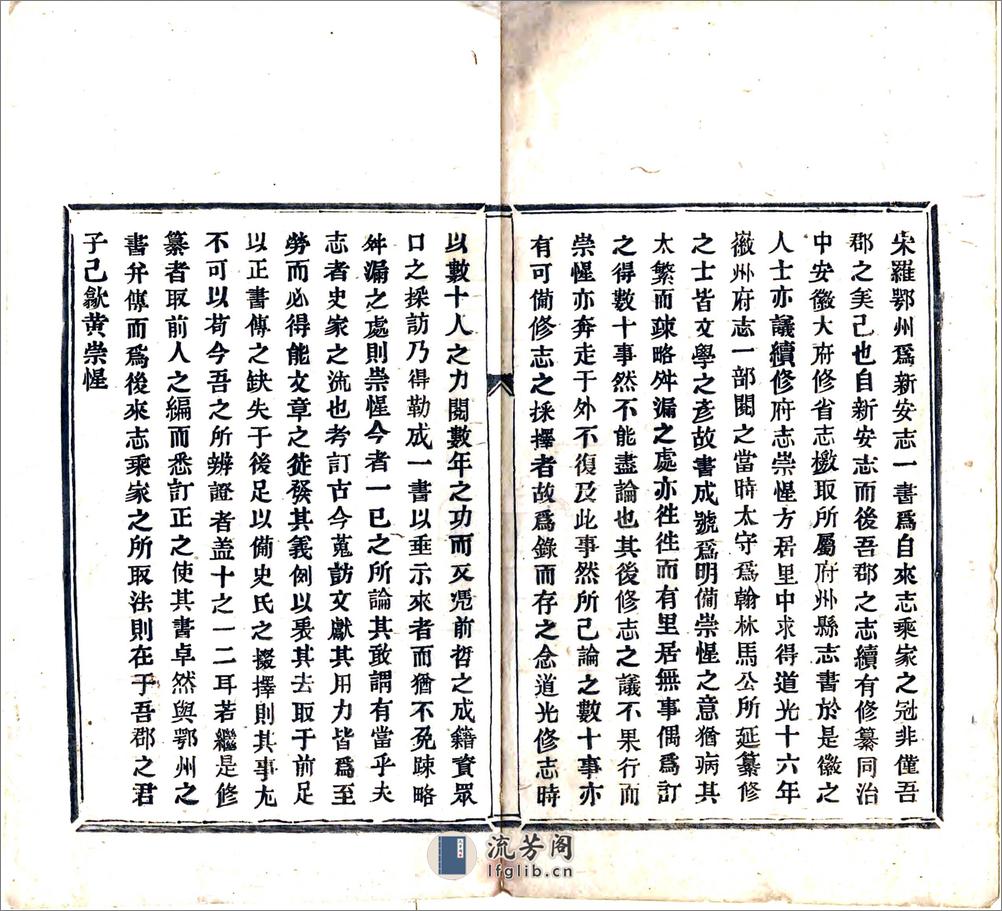 宋羅鄂州爲新安志一書爲自來志乘家之冠非僅吾
郡之矣己也自新安志而後吾郡之志續有修纂同治
中安徽大府修省志檄取所屬府州縣志書於是徽之
人士亦議續修府志崇惺方居里中求得道光十六年
徽州府志一部閱之當時太守爲翰林馬公所延纂修
之士皆文學之彥故書成號爲明備崇惺之意猶病其
太繁而疎略舛漏之處亦徃徃而有里居無事偶爲訂
之得數十事然不能盡論也其後修志之議不果行而
崇惺亦奔走于外不復及此事然所己論之數十事亦
有可備修志之採擇者故爲錄而存之念道光修志時
以數十人之力閱數年之功而又凴前哲之成籍資眾
口之採訪乃得勒成一書以垂示來者而猶不免疎略
舛漏之處則崇惺今者一已之所論其敢謂有當乎夫
志者史家之流也考訂古今蒐訪文獻其用力皆爲至
勞而必得能文章之徒發其義例以裦其去取于前足
以正書傳之缺失于後足以備史氏之掇擇則其事尢
不可以苟今吾之所辨證者盖十之一二耳若繼是修
纂者取前人之編而悉訂正之使其書卓然與鄂州之
書幷傳而爲後來志乘家之所取法則在于吾郡之君
子己歙黄崇惺
流芳阁
lfglib.cn